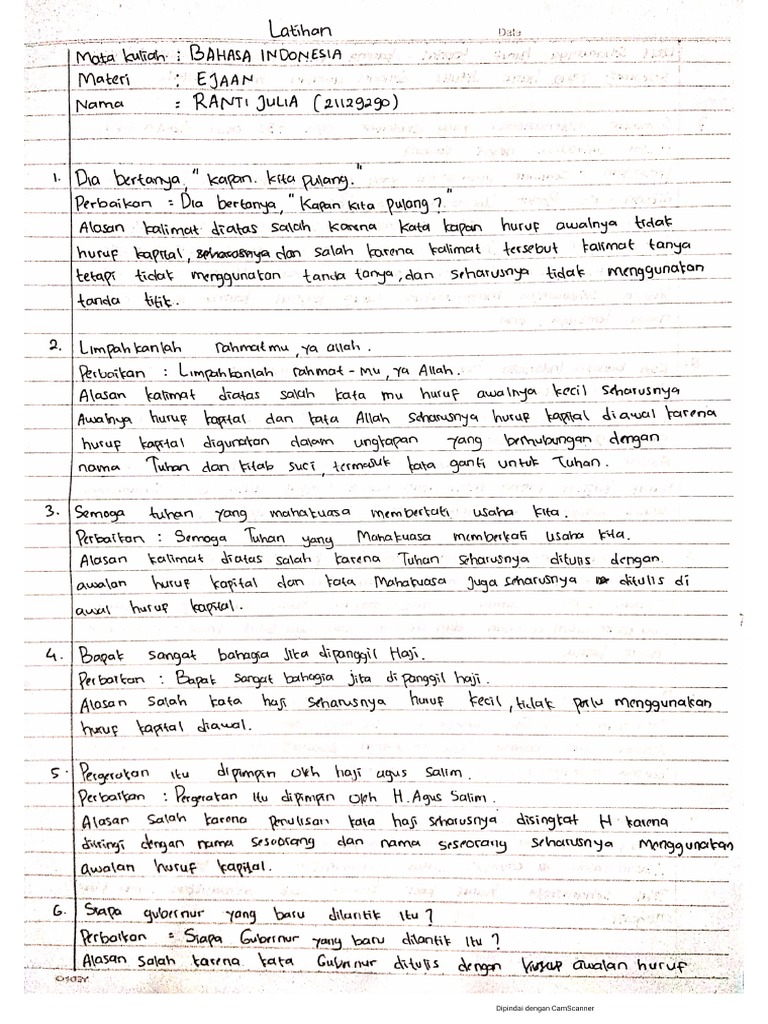 Latihan
Date
Mata kuliah : BAHASA INDONESIA
Materi : EJAAN
Nama : RANTI JULIA (21129290)
1. Dia bertanya, " kapan. kita pulang."
Perbaikan = Dia bertanya, " Kapan kita pulang ? "
Alasan kalimat diatas salah karena kata kapan huruf awalnya tidak
huruf kapital, seharosnya dan salah karena kalimat tersebut kalimat tanya
tetapi tidak menggunakan tanda tanya, dan seharusnya tidak menggunakan
tanda titik.
2. Limpahkanlah rahmatmu, ya allah.
Perbaikan : Limpahkanlah rahmat-Mu, ya Allah.
Alasan kalimat diatas salah kata mu huruf awalnya kecil seharusnya
Awalnya huruf kapital dan kata Allah seharusnya huruf kapital diawal karena
huruf kapital digunakan dalam ungkapan yang berhubungan dengan
nama Tuhan dan kitab suci, termasuk kata ganti untuk Tuhan.
3. Semoga tuhan yang mahakuasa memberkati usaha kita.
Perbaikan : Semoga Tuhan yang Mahakuasa memberkati usaha kita.
Alasan kalimat diatas salah karena Tuhan seharusnya ditulis dengan
awalan huruf kapital dan kata Mahakuasa juga seharusnya ditulis di
awal huruf kapital.
4. Bapak sangat bahagia jika dipanggil Haji.
Perbaikan : Bapak sangat bahagia jika dipanggil haji.
Alasan salah kata haji seharusnya huruf kecil, tidak perlu menggunakan
huruf kapital diawal.
5. Pergerakan itu dipimpin oleh haji agus Salim.
Perbaikan : Pergerakan itu dipimpin oleh H. Agus Salim.
Alasan salah karena penulisan kata haji seharusnya disingkat H karena
diiringi dengan nama seseorang dan nama seseorang seharusnya menggunakan
awalan huruf kapital.
6. Siapa gubernur yang baru dilantik itu ?
Perbaikan = Siapa Gubernur yang baru dilantik itu ?
Alasan salah karena kata Gubernur ditulis dengan awalan huruf
Dipindai dengan CamScanner